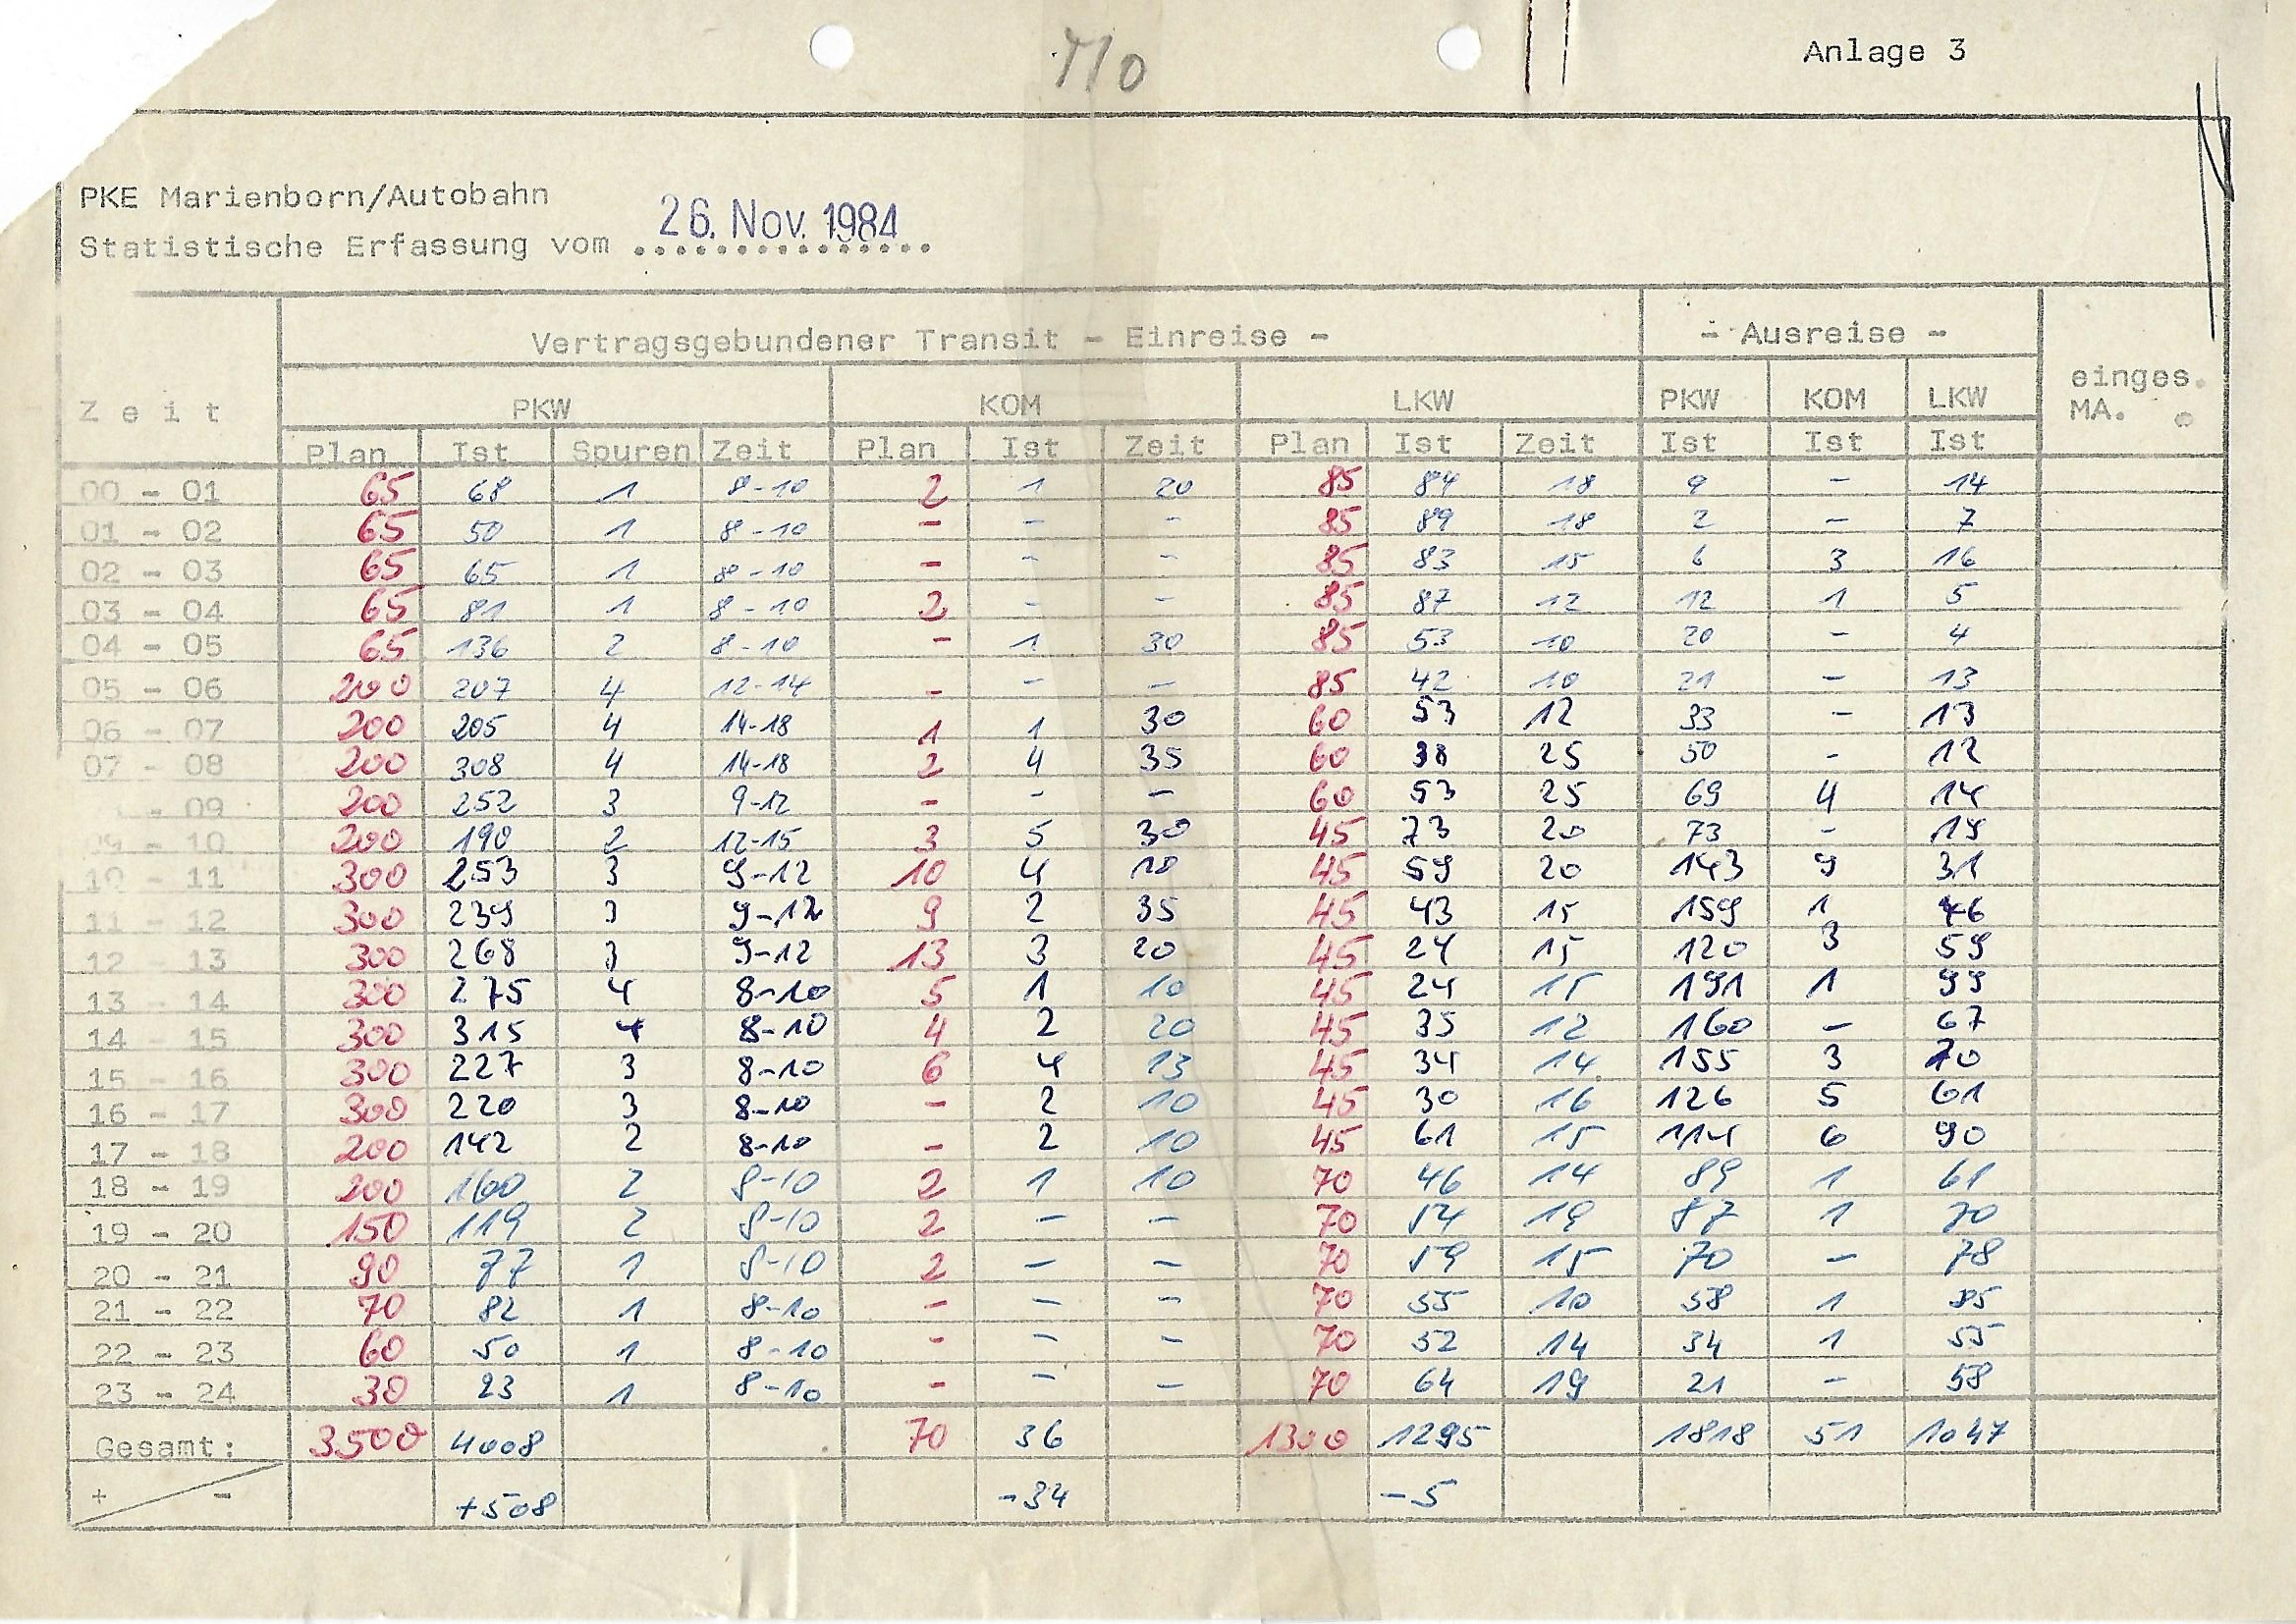 MO
Anlage 3
PKE Marienborn/Autobahn
Statistische Erfassung vom 26. Nov. 1984
Vertragsgebundener Transit - Einreise - - Ausreise -
Zeit PKW KOM LKW PKW KOM LKW einges. MA.
Plan Ist Spuren Zeit Plan Ist Zeit Plan Ist Zeit Ist Ist Ist
00 - 01 65 68 1 8-10 2 1 20 85 84 18 9 - 14
01 - 02 65 50 1 8-10 - - - 85 89 18 2 - 7
02 - 03 65 65 1 8-10 - - - 85 83 15 6 3 16
03 - 04 65 81 1 8-10 2 - - 85 87 12 12 1 5
04 - 05 65 136 2 8-10 - 1 30 85 53 10 20 - 4
05 - 06 200 207 4 12-14 - - - 85 42 10 21 - 13
06 - 07 200 205 4 14-18 1 1 30 60 53 12 33 - 13
07 - 08 200 308 4 14-18 2 4 35 60 38 25 50 - 12
- 09 200 252 3 9-12 - - - 60 53 25 69 4 14
- 10 200 190 2 12-15 3 5 30 45 73 20 73 -
10 - 11 300 253 3 9-12 10 4 45 59 20 143 9 31
11 - 12 300 239 3 9-12 9 2 35 45 43 15 159 1 46
12 - 13 300 268 3 9-12 13 3 20 45 24 15 120 3 59
13 - 14 300 275 4 8-10 5 1 10 45 24 15 191 1 99
14 - 15 300 315 4 8-10 4 2 20 45 35 12 160 - 67
15 - 16 300 227 3 8-10 6 4 13 45 34 14 155 3 70
16 - 17 300 220 3 8-10 - 2 10 45 30 16 126 5 61
17 - 18 200 142 2 8-10 - 2 10 45 61 15 114 6 90
18 - 19 200 160 2 8-10 2 1 10 70 46 14 89 1 61
19 - 20 150 119 2 8-10 2 - - 70 54 19 87 1 70
20 - 21 90 77 1 8-10 2 - - 70 59 15 70 - 78
21 - 22 70 82 1 8-10 - - - 70 55 10 58 1 85
22 - 23 60 50 1 8-10 - - - 70 52 14 34 1 55
23 - 24 30 23 1 8-10 - - - 70 64 19 21 - 58
Gesamt: 3500 4008 70 36 1300 1295 1818 51 1047
+ - +508 -34 -5